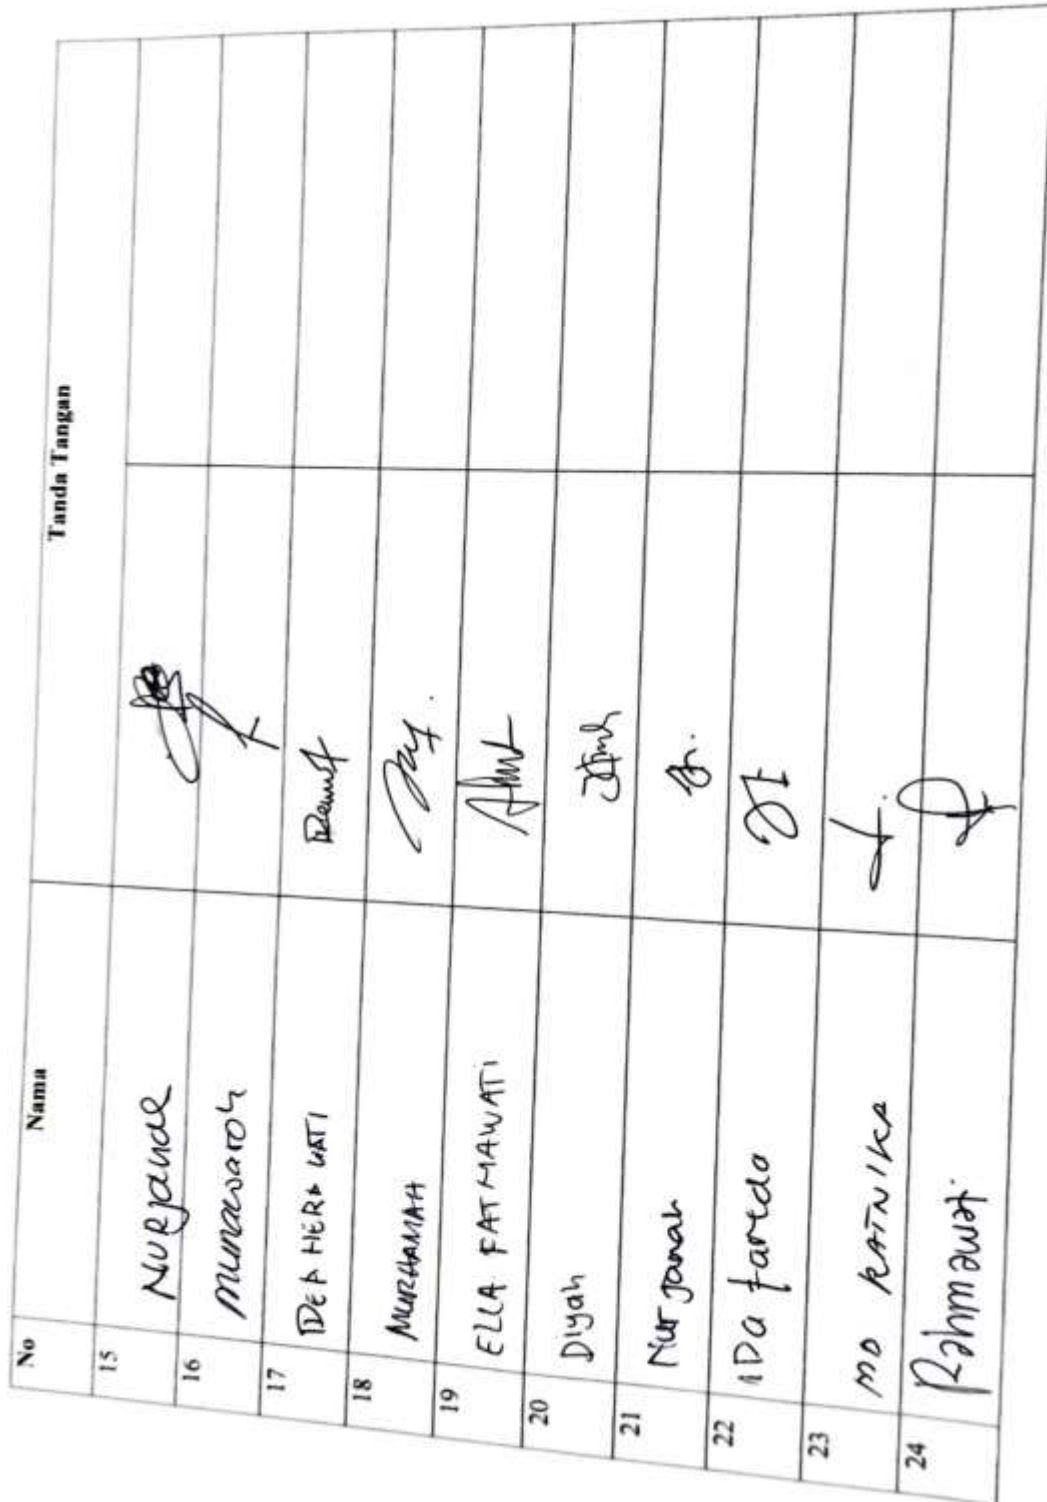 No Nama Tanda Tangan
15 NURjanah
16 Munawaroh
17 DEA HERAWATI
18 MURHAMAH
19 ELLA FATMAWATI
20 Diyah
21 Nur Janah
22 IDa farida
23 MD RATNIKA
24 Rahmawati